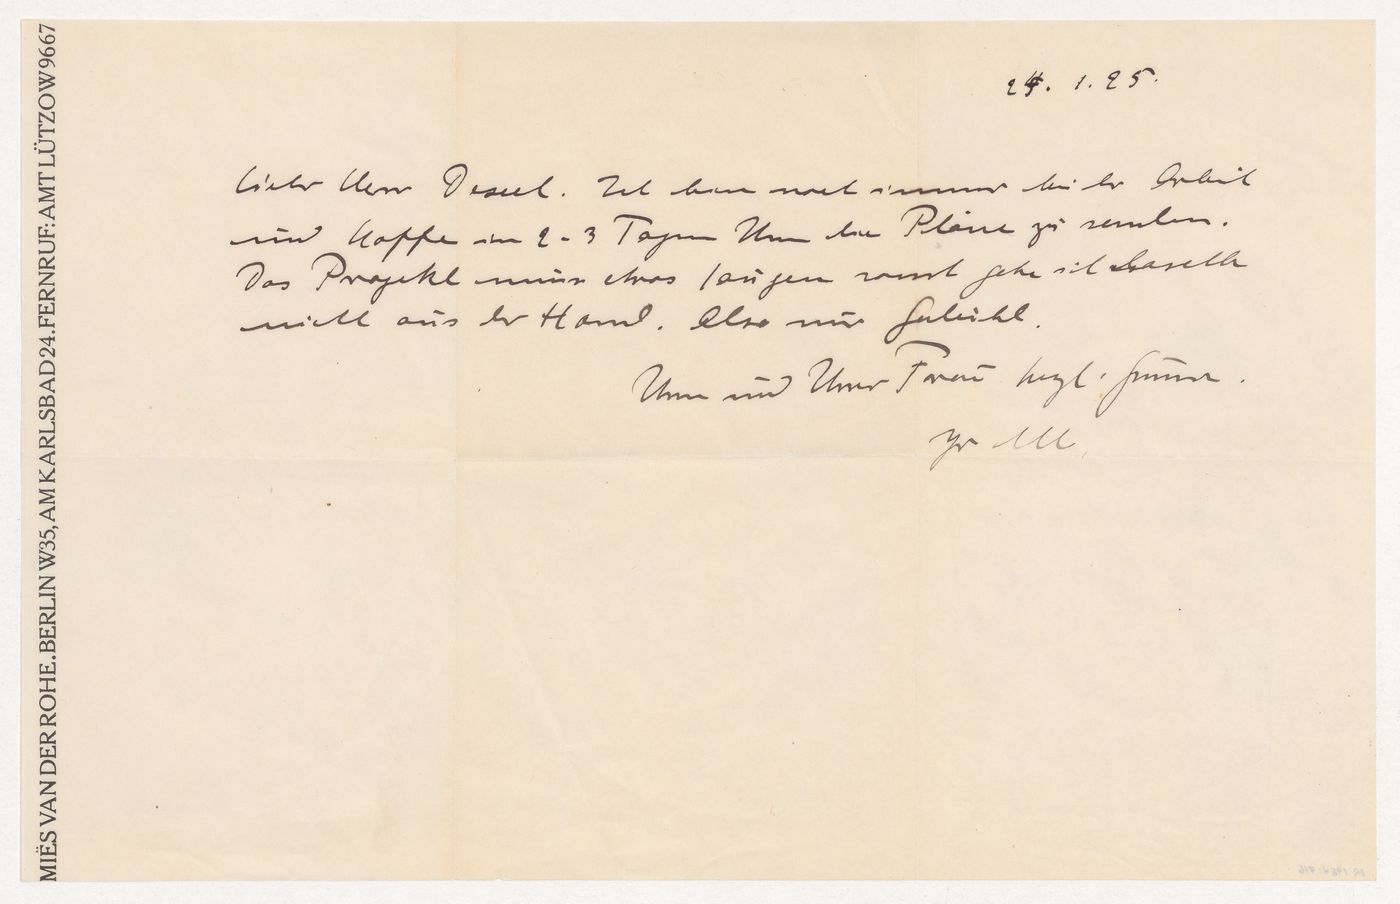 MIËS VAN DER ROHE. BERLIN W35, AM KARLSBAD 24. FERNRUF: AMT LÜTZOW 9667
24. 1. 25.
Lieber Herr Dexel. Ich bin noch immer bei der Arbeit
und hoffe in 2-3 Tagen Ihnen die Pläne zu senden.
Das Projekt muss etwas taugen sonst gebe ich dasselbe
nicht aus der Hand. Also nur Geduld.
Ihnen und Ihrer Frau herzl. Grüsse.
Ihr M